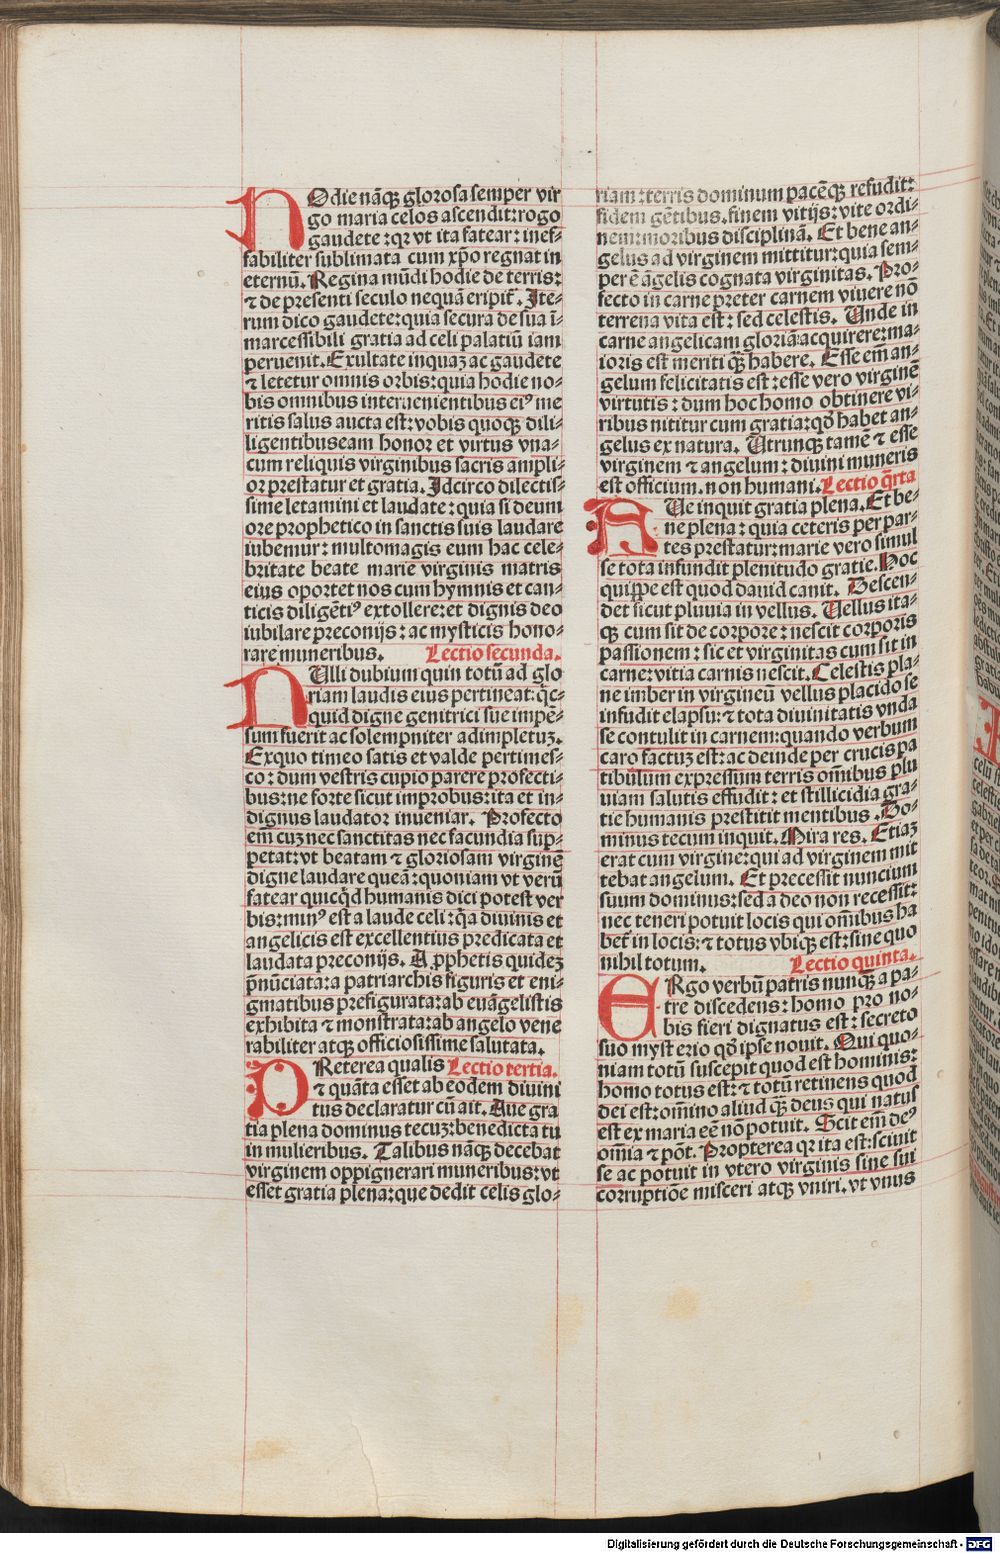 HOdie nāqꝫ glorosa semper vir
go maria celos ascendit: rogo
gaudete: qꝛ vt ita fatear: inef⸗
fabiliter sublimata cum xpo regnat in
eternū. Regina mūdi hodie de terris:
⁊ de presenti seculo nequā eripit᷑. Ite⸗
rum dico gaudete: quia secura de sua ī⸗
marcessibili gratia ad celi palatiū iam
peruenit. Exultate inquaꝫ ac gaudete
⁊ letetur omnis orbis: quia hodie no⸗
bis omnibus interuenientibus eiꝰ me
ritis salus aucta est: vobis quoqꝫ dili⸗
ligentibuseam honor et virtus vna⸗
cum reliquis virginibus sacris ampli⸗
or prestatur et gratia. Idcirco dilectis⸗
sime letamini et laudate: quia si deum
ore prophetico in sanctis suis laudare
iubemur: multomagis eum hac cele⸗
britate beate marie virginis matris
eius oportet nos cum hymnis et can⸗
ticis diligētiꝰ extollere: et dignis deo
iubilare preconijs: ac mysticis hono⸗
rare muneribus. Lectio secunda.
NUlli dubium quin totū ad glo
riam laudis eius pertineat: qc⸗
quid digne genitrici sue impē⸗
sum fuerit ac solempniter adimpletuꝫ.
Exquo timeo satis et valde pertimes⸗
co: dum vestris cupio parere profecti⸗
bus: ne forte sicut improbus: ita et in⸗
dignus laudator inueniar. Profecto
em̄ cuꝫ nec sanctitas nec facundia sup⸗
petat: vt beatam ⁊ gloriosam virginē
digne laudare queā: quoniam vt verū
fatear quicq̄d humanis dici potest ver
bis: minꝰ est a laude celi: q̄a diuinis et
angelicis est excellentius predicata et
laudata preconijs. A ꝓphetis quideꝫ
p̄nūciata: a patriarchis figuris et eni⸗
gmatibus prefigurata: ab euāgelistis
exhibita ⁊ monstrata: ab angelo vene
rabiliter atqꝫ officiosissime salutata.
PReterea qualis Lectio tertia.
⁊ quāta esset ab eodem diuini
tus declaratur cū ait. Aue gra
tia plena dominus tecuꝫ: benedicta tu
in mulieribus. Talibus nāqꝫ decebat
virginem oppignerari muneribus: vt
esset gratia plena: que dedit celis glo⸗
riam: terris dominum pacēqꝫ refudit:
fidem gētibus. finem vitijs: vite ordi⸗
nem: moribus disciplinā. Et bene an⸗
gelus ad virginem mittitur: quia sem⸗
per ē āgelis cognata virginitas. Pro⸗
fecto in carne preter carnem viuere nō
terrena vita est: sed celestis. Unde in
carne angelicam gloriā acquirere: ma⸗
ioris est meriti qꝫ̄ habere. Esse em̄ an⸗
gelum felicitatis est: esse vero virginē
virtutis: dum hoc homo obtinere vi⸗
ribus nititur cum gratia: qd̄ habet an⸗
gelus ex natura. Utrunqꝫ tamē ⁊ esse
virginem ⁊ angelum: diuini muneris
est officium. non humani. Lectio q̄rta
AUe inquit gratia plena. Et be⸗
ne plena: quia ceteris per par⸗
tes prestatur: marie vero simul
se tota infundit plenitudo gratie. Hoc
quippe est quod dauid canit. Descen⸗
det sicut pluuia in vellus. Uellus ita⸗
qꝫ cum sit de corpore: nescit corporis
passionem: sic et virginitas cum sit in
carne: vitia carnis nescit. Celestis pla⸗
ne imber in virgineū vellus placido se
infudit elapsu: ⁊ tota diuinitatis vnda
se contulit in carnem: quando verbum
caro factuꝫ est: ac deinde per crucis pa
tibulum expressum terris om̄ibus plu
uiam salutis effudit: et stillicidia gra⸗
tie humanis prestitit mentibus. Do⸗
minus tecum inquit. Mira res. Etiaꝫ
erat cum virgine: qui ad virginem mit
tebat angelum. Et precessit nuncium
suum dominus: sed a deo non recessit:
nec teneri potuit locis qui om̄ibus ha
bet᷑ in locis: ⁊ totus vbiqꝫ est: sine quo
nihil totum. Lectio quinta.
ERgo verbū patris nunqꝫ̄ a pa⸗
tre discedens: homo pro no⸗
bis fieri dignatus est: secreto
suo mysterio qd̄ ipse nouit. Qui quo⸗
niam totū suscepit quod est hominis:
homo totus est: ⁊ totū retinens quod
dei est: om̄ino aliud qꝫ̄ deus qui natus
est ex maria eē nō potuit. Scit em̄ deꝰ
om̄ia ⁊ pōt. Propterea qꝛ ita est: sciuit
se ac potuit in vtero virginis sine sui
corruptiōe misceri atqꝫ vniri. vt vnus
Digitalisierung gefördert durch die Deutsche Forschungsgemeinschaft - DFG